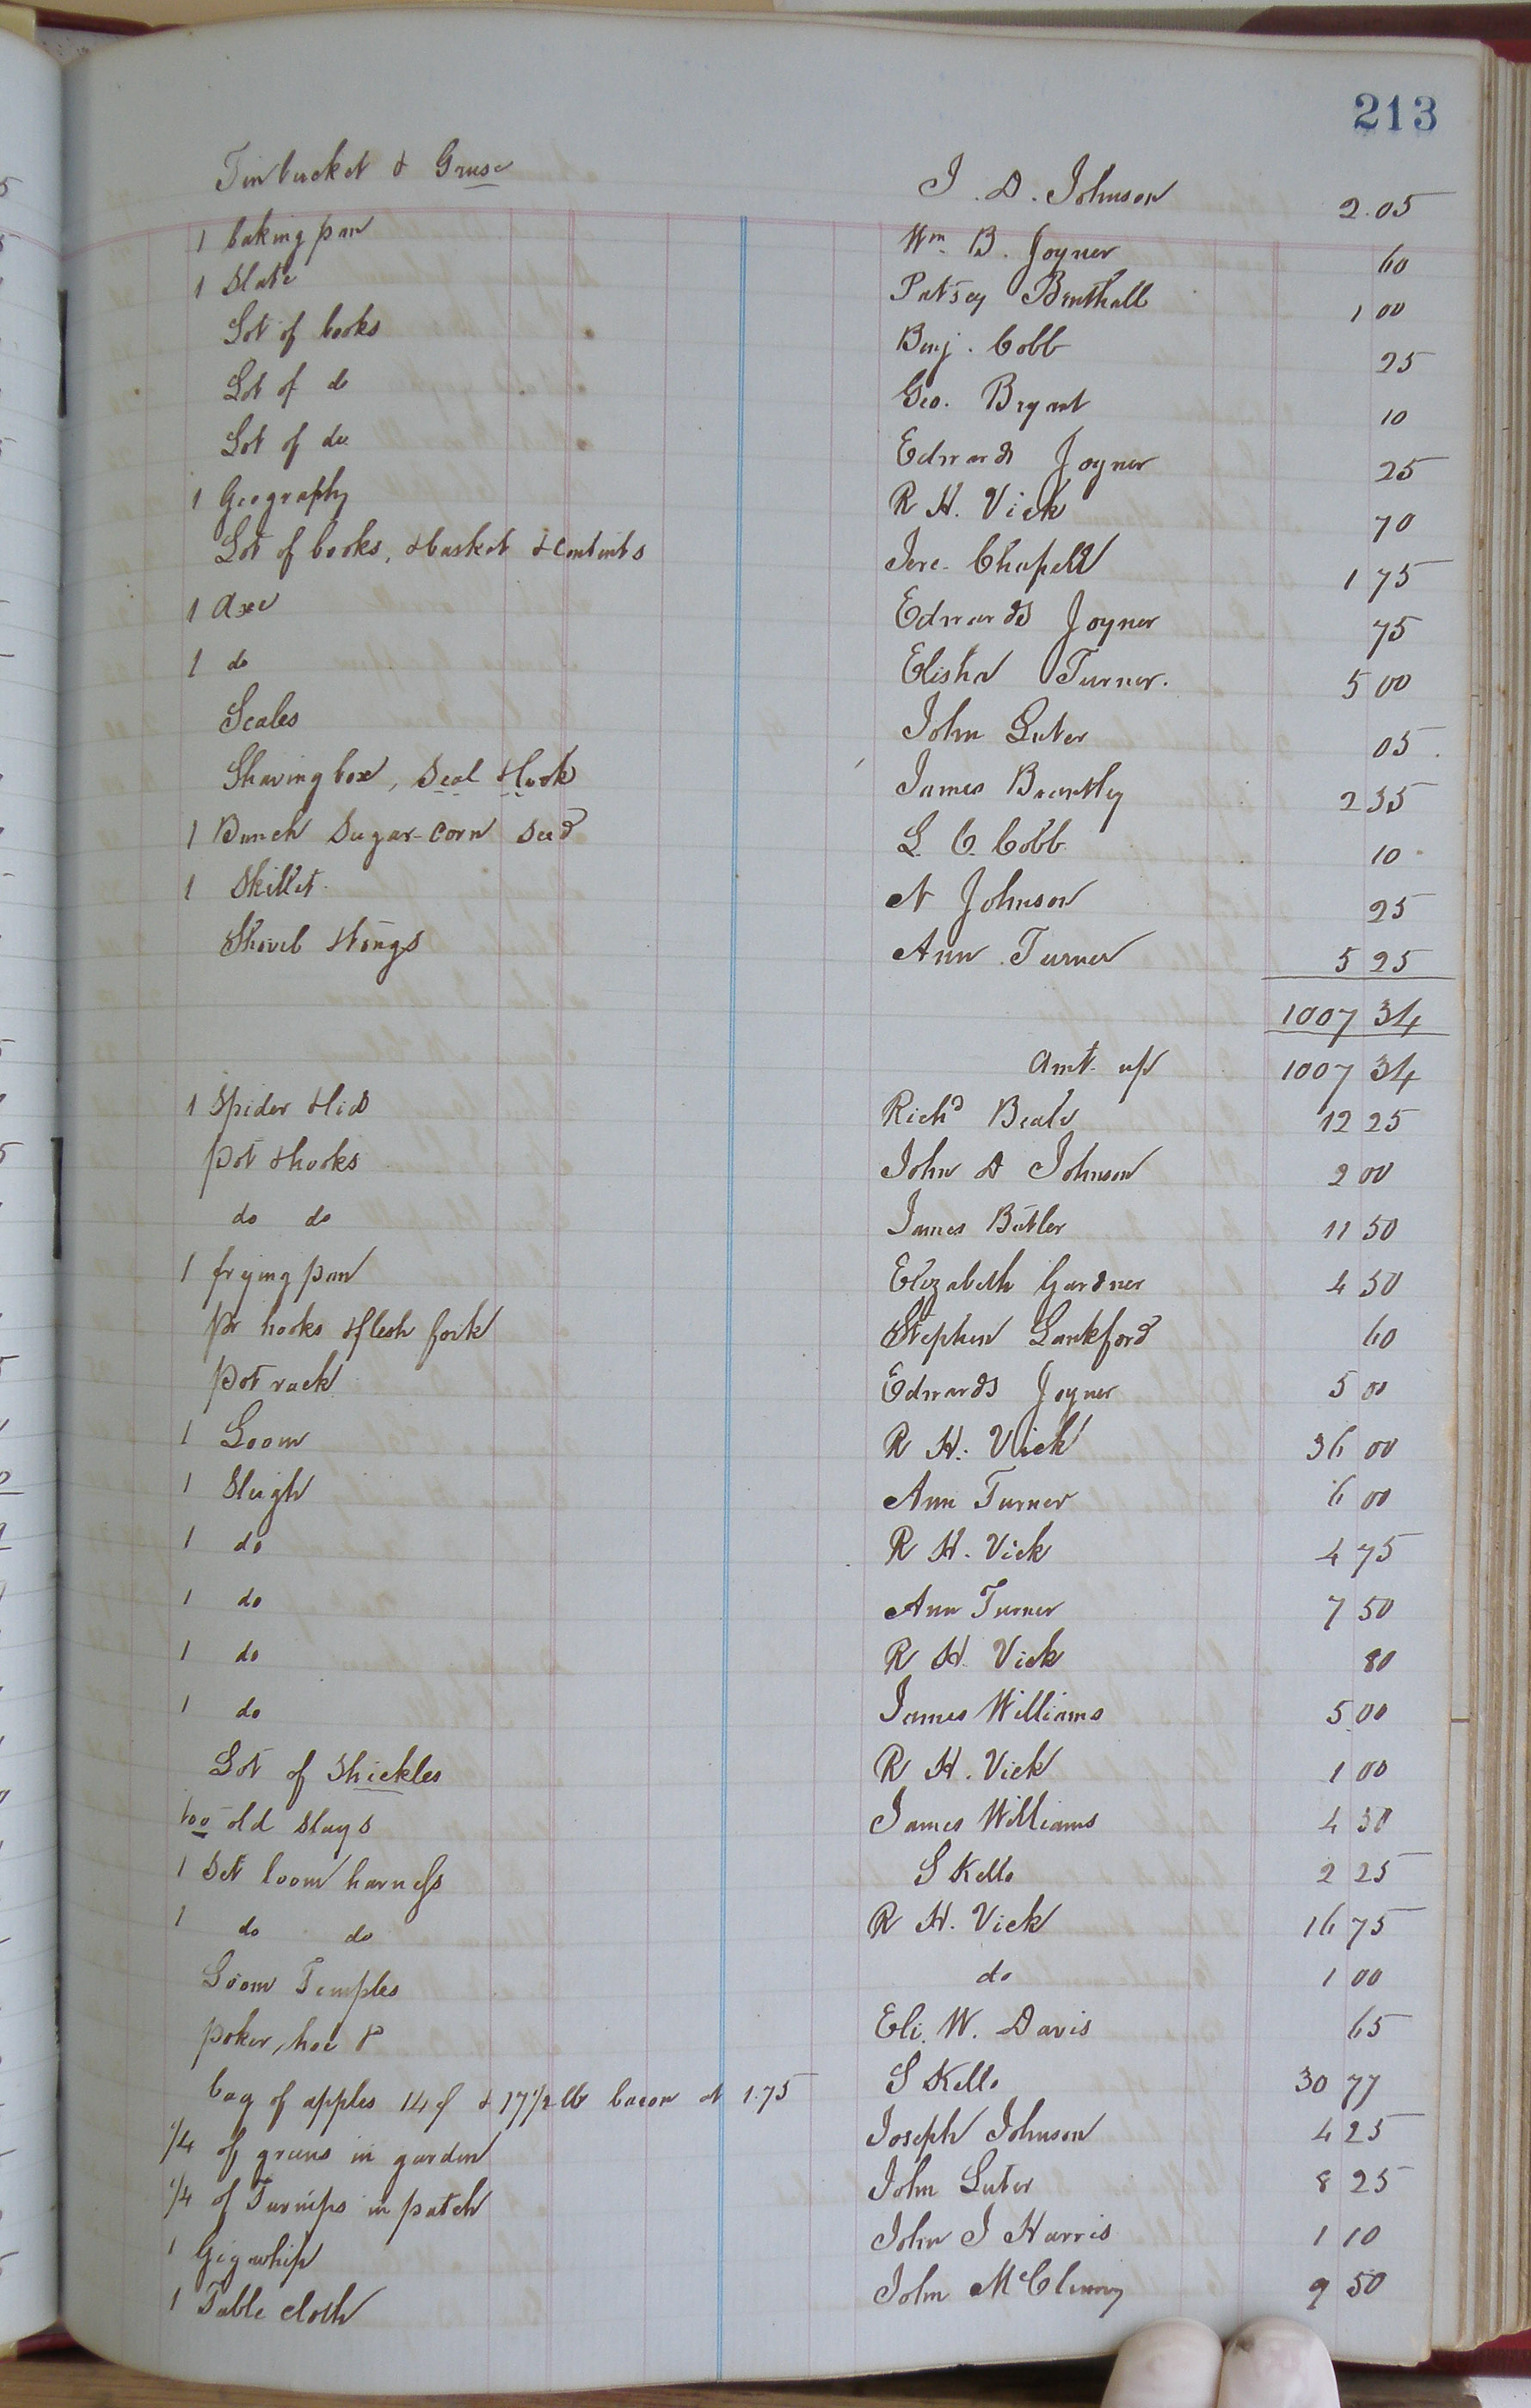 213
Tin bucket & Grease J. D. Johnson 2.05
1 baking pan Wm. B. Joyner 60
1 Slate Patsey Brithall 1 00
Lot of books Benj. Cobb 25
Lot of do Geo. Bryant 10
Lot of do Edwards Joyner 25
1 Geography R H. Vick 70
Lot of books, & basket & Contents Jere. Chapell 1 75
1 Axe Edwards Joyner 75
1 do Elisha Turner. 5 00
Scales John Luter 05
Shaving box, Seal & Lock James Brantley 2 35
1 Bunch Sugar-Corn Seed L. C. Cobb 10
1 Skillet. N Johnson 25
Shovel & tongs Ann Turner 5 25
1007 34
Amt. up 1007 34
1 Spider & lid Richd Beale 12 25
Pot & hooks John D Johnson 2 00
do do James Butler 11 50
1 frying pan Elizabeth Gardner 4 50
Pr hooks & flesh fork Stephen Lankford 60
Pot rack Edwards Joyner 5 00
1 Loom R H. Vick 36 00
1 Sleigh Ann Turner 6 00
1 do R H. Vick 4 75
1 do Ann Turner 7 50
1 do R H. Vick 80
1 do James Williams 5 00
Lot of Shickles R H. Vick 1 00
too old Slays James Williams 4 50
1 Set loom harness S Kello 2 25
1 do do R H. Vick 16 75
Loom Temples do 1 00
Poker, hoe & Eli. W. Davis 65
bag of apples 14 & 17 1/2 lb bacon at 1.75 S Kello 30 77
1/4 of greens in garden Joseph Johnson 4 25
1/4 of Turnips in patch John Luter 8 25
1 Gig whip John J Harris 1 10
1 Table cloth John McClenny 9 50